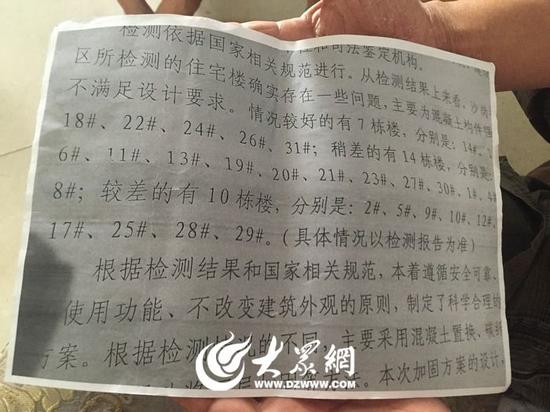 检测依据国家相关规范进行。从检测结果上来看,沙
区所检测的住宅楼确实存在一些问题,主要为混凝土构件
不满足设计要求。情况较好的有7栋楼,分别是:14#、
18#、22#、24#、26#、31#;稍差的有14栋楼,分别是:
6#、11#、13#、19#、20#、21#、23#、27#、30#、1#、4#
8#;较差的有10栋楼,分别是:2#、5#、9#、10#、12#、
17#、25#、28#、29#。(具体情况以检测报告为准)
根据检测结果和国家相关规范,本着遵循安全可靠、
使用功能、不改变建筑外观的原则,制定了科学合理的
方案。根据检测 的不同,主要采用混凝土置换、碳
本次加固方案的设计,
大众网
WWW.DZWWW.COM